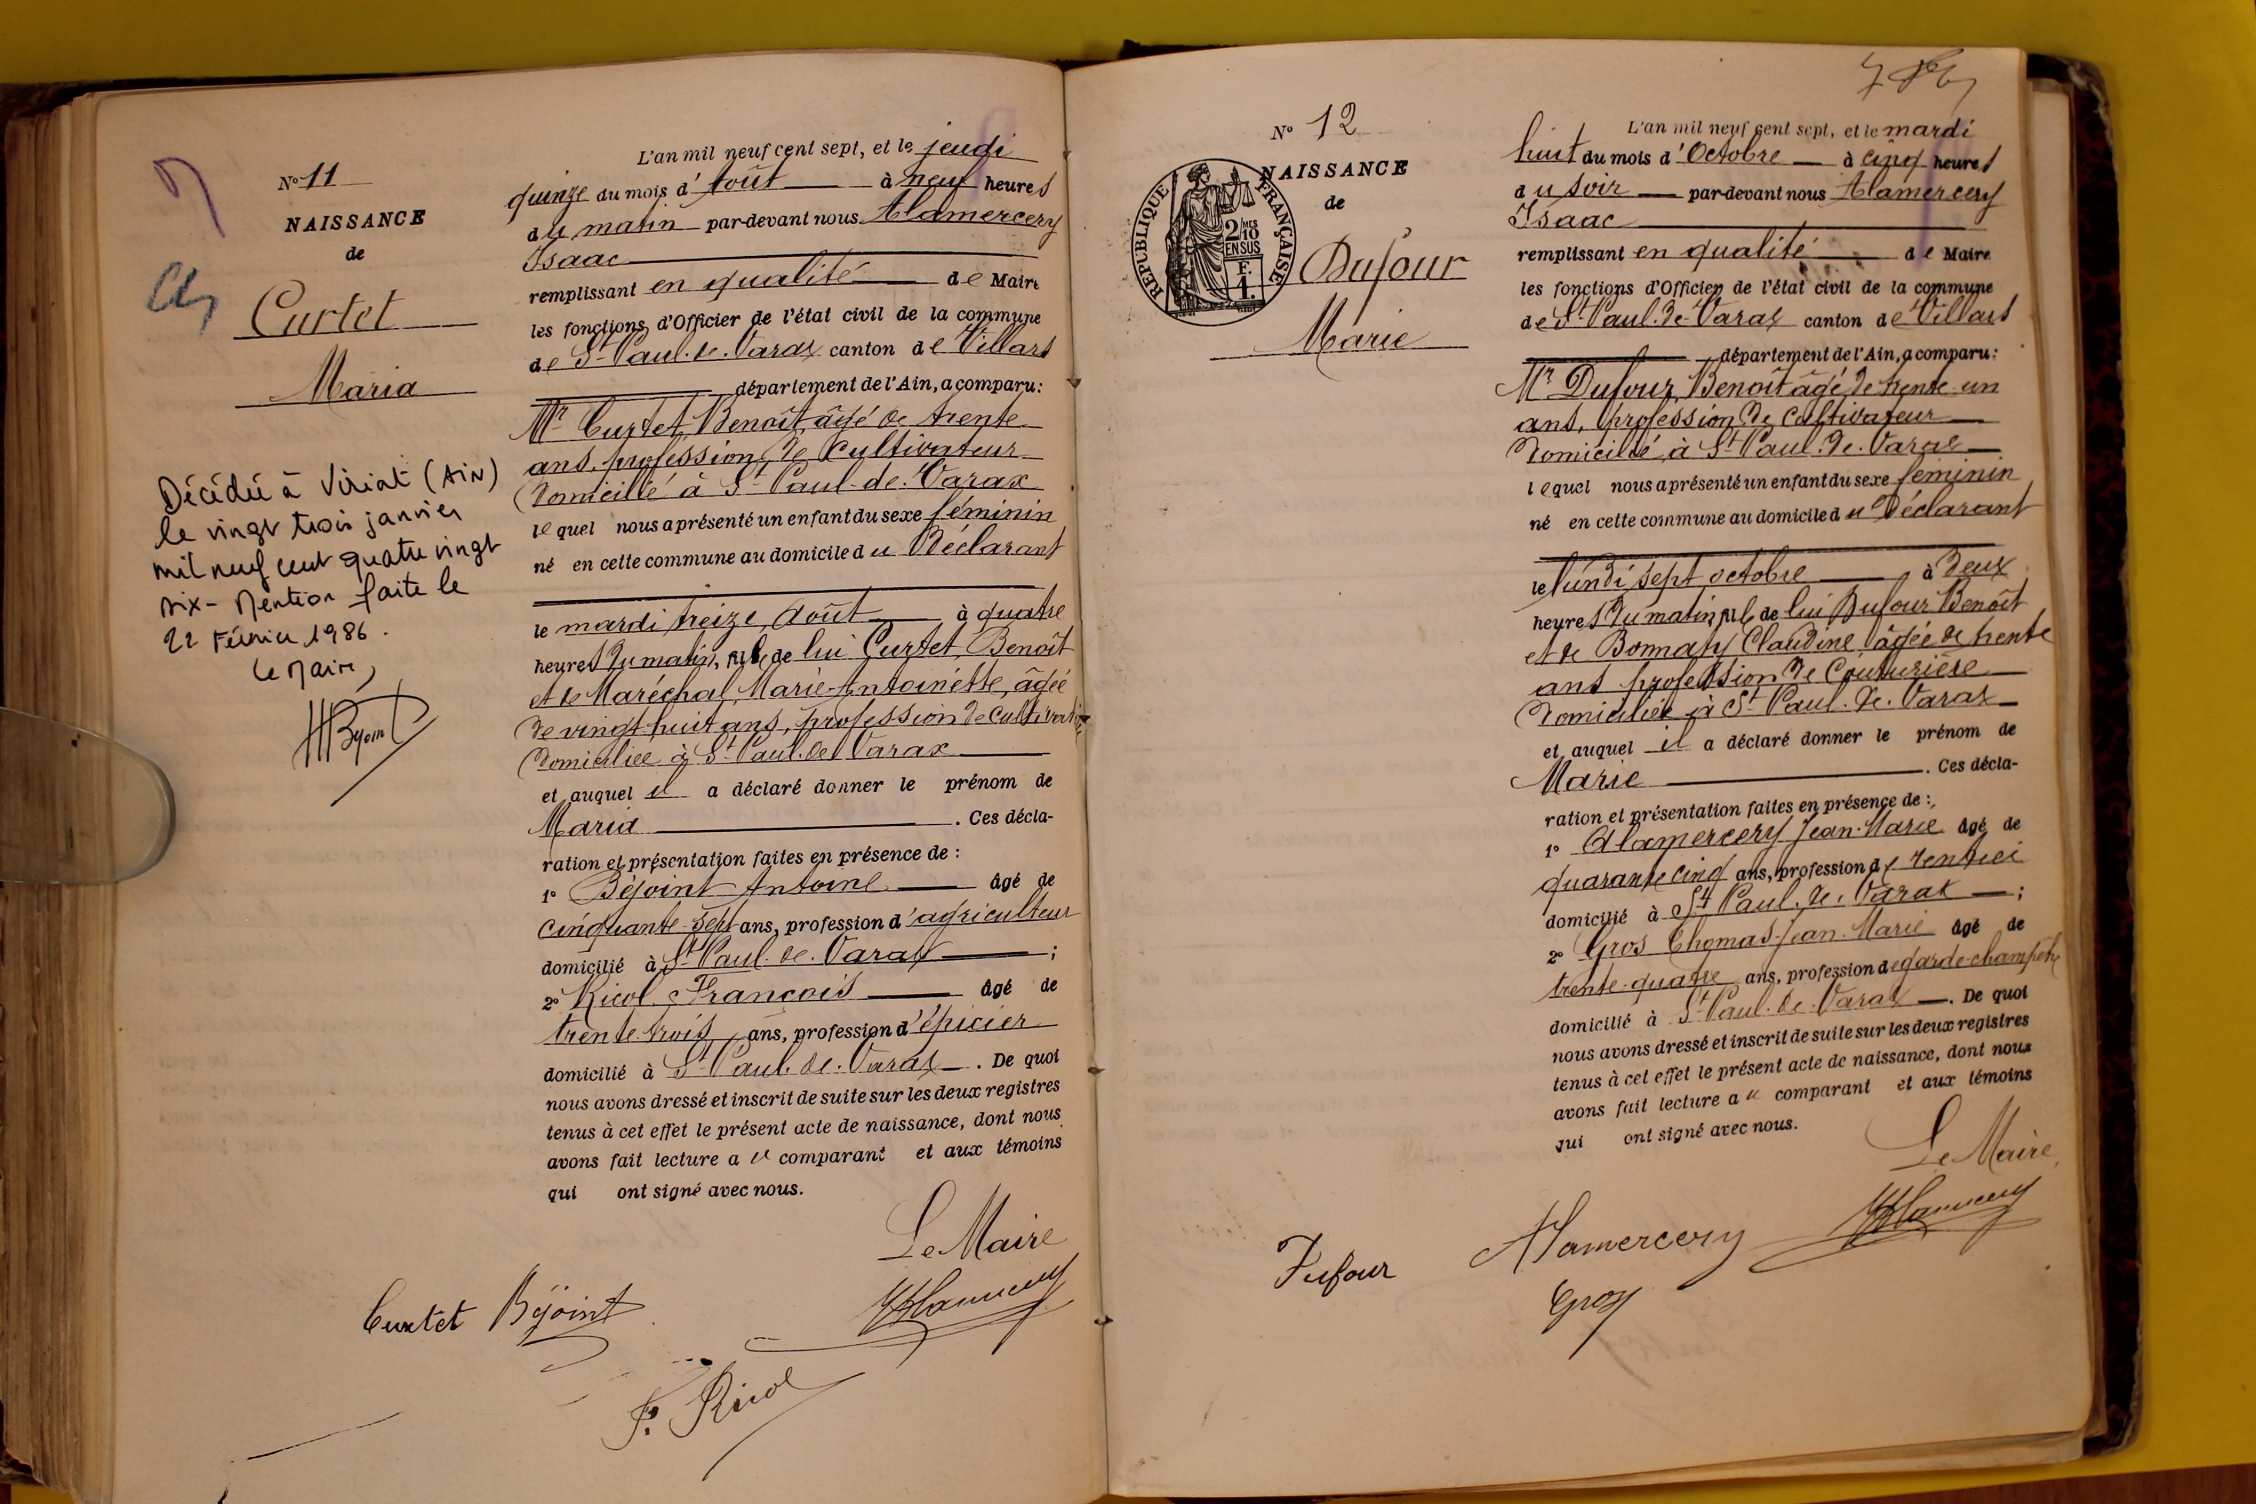 Nº 11
NAISSANCE
de
Curtet
Maria
Décédée à Viriat (AIN)
le vingt trois janvier
mil neuf cent quatre vingt
six - Mention faite le
22 Février 1986.
Le Maire,
L'an mil neuf cent sept, et le jeudi
quinze du mois d'Août à neuf heures
du matin par-devant nous Alamercery
Isaac
remplissant en qualité de Maire
les fonctions d'Officier de l'état civil de la commune
de St Paul-de-Varax canton de Villars
département de l'Ain, a comparu :
Mr Curtet Benoît âgé de trente
ans, profession de Cultivateur
domicilié à St Paul-de-Varax
lequel nous a présenté un enfant du sexe féminin
né en cette commune au domicile du Déclarant
le mardi treize Août à quatre
heures du matin, fille de lui Curtet Benoît
et de Maréchal Marie-Antoinette, âgée
de vingt huit ans, profession de cultivatrice
domiciliée à St Paul-de-Varax
et auquel il a déclaré donner le prénom de
Maria . Ces décla-
ration et présentation faites en présence de :
1º Béjoint Antoine âgé de
cinquante-sept ans, profession d'agriculteur
domicilié à St Paul-de-Varax ;
2º Ricol François âgé de
trente trois ans, profession d'épicier
domicilié à St Paul-de-Varax . De quoi
nous avons dressé et inscrit de suite sur les deux registres
tenus à cet effet le présent acte de naissance, dont nous
avons fait lecture au comparant et aux témoins
qui ont signé avec nous.
Le Maire
Curtet Béjoint
F. Ricol
Nº 12
NAISSANCE
de
RÉPUBLIQUE FRANÇAISE
2/10 EN SUS
F. 1.
Dufour
Marie
L'an mil neuf cent sept, et le mardi
huit du mois d'Octobre à cinq heures
du soir par-devant nous Alamercery
Isaac
remplissant en qualité de Maire
les fonctions d'Officier de l'état civil de la commune
de St Paul-de-Varax canton de Villars
département de l'Ain, a comparu :
Mr Dufour Benoît âgé de trente-un
ans, profession de cultivateur
domicilié à St Paul-de-Varax
lequel nous a présenté un enfant du sexe féminin
né en cette commune au domicile du Déclarant
le lundi sept octobre à deux
heures du matin, fille de lui Dufour Benoît
et de Bonnaty Claudine âgée de trente
ans profession de Couturière
domiciliée à St Paul-de-Varax
et auquel il a déclaré donner le prénom de
Marie . Ces décla-
ration et présentation faites en présence de :
1º Alamercery Jean-Marie âgé de
quarante cinq ans, profession de rentier
domicilié à St Paul-de-Varax ;
2º Gros Thomas-Jean-Marie âgé de
trente-quatre ans, profession de garde-champêtre
domicilié à St Paul-de-Varax . De quoi
nous avons dressé et inscrit de suite sur les deux registres
tenus à cet effet le présent acte de naissance, dont nous
avons fait lecture au comparant et aux témoins
qui ont signé avec nous.
Le Maire
Dufour Alamercery
Gros